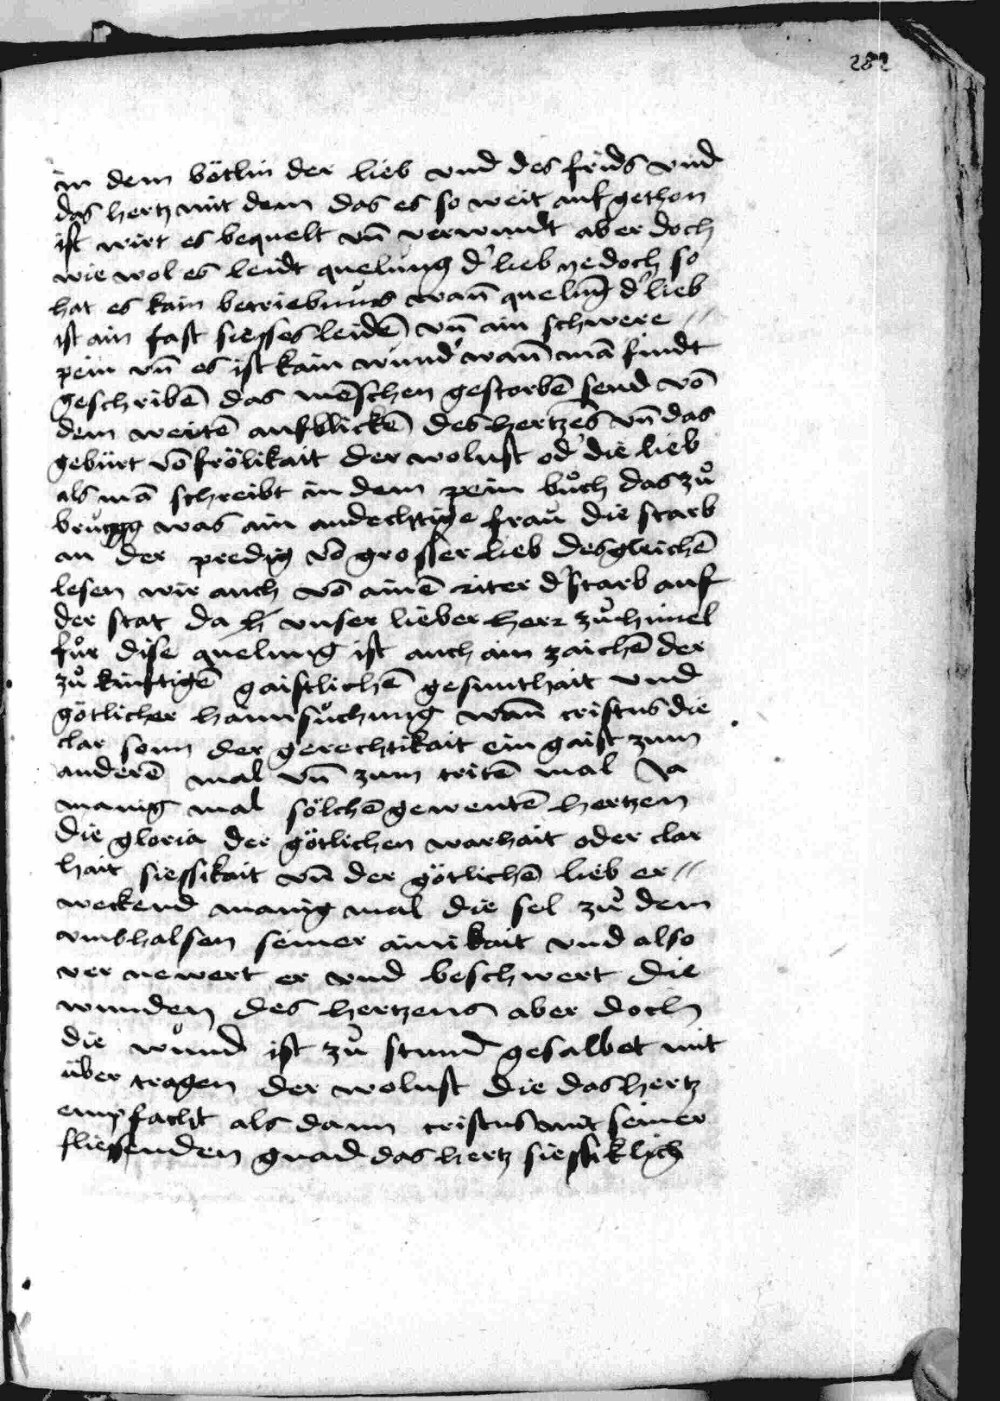 282
in dem bötlin der lieb vnd des frids vnd
das hertz mit dem das es so weit auf gethon
ist wirt es bequelt vn̄ verwundt aber doch
wie wol es leidt quelung d' lieb yedoch so
hat es kain betriebnus wan̄ quelūg d' lieb
ist ain fast siesses leidē vn̄ ain schwere //
pein vn̄ es ist kain wund' wan̄ mā findt
geschribē das mēschen gestorbē send vō
dem weitē aufblickē des hertzēs vn̄ das
gebürt vō frölikait der wolust od' die lieb
als mā schreibt in dem pein bůch das zů
brugg was ain andechtige frau die starb
an der predig vō grosser lieb desgleichē
lesen wir auch vō ainē riter d' starb auf
der stat da vnser lieber herr zů himel
fůr dise quelung ist auch ain zaichē der
zů kinftigē gaistlichē gesunthait vnd
götlicher haimsůchung wan̄ cristus die
clar sonn der gerechtikait ein gaist zum
anderē mal vn̄ zum tritē mal Ja
manig mal sölchē gewentē hertzen
die gloria der götlichen warhait oder clar
hait siessikait vn̄ der götlichē lieb er //
weckend manig mal die sel zů dem
vmbhalsen seiner ainikait vnd also
ver newert er vnd beschwert die
wunden des hertzens aber doch
die wund ist zů stund gesalbet mit
über tragen der wolust die das hertz
empfacht als dann cristus mit seiner
fliessenden gnad das hertz siessiklich